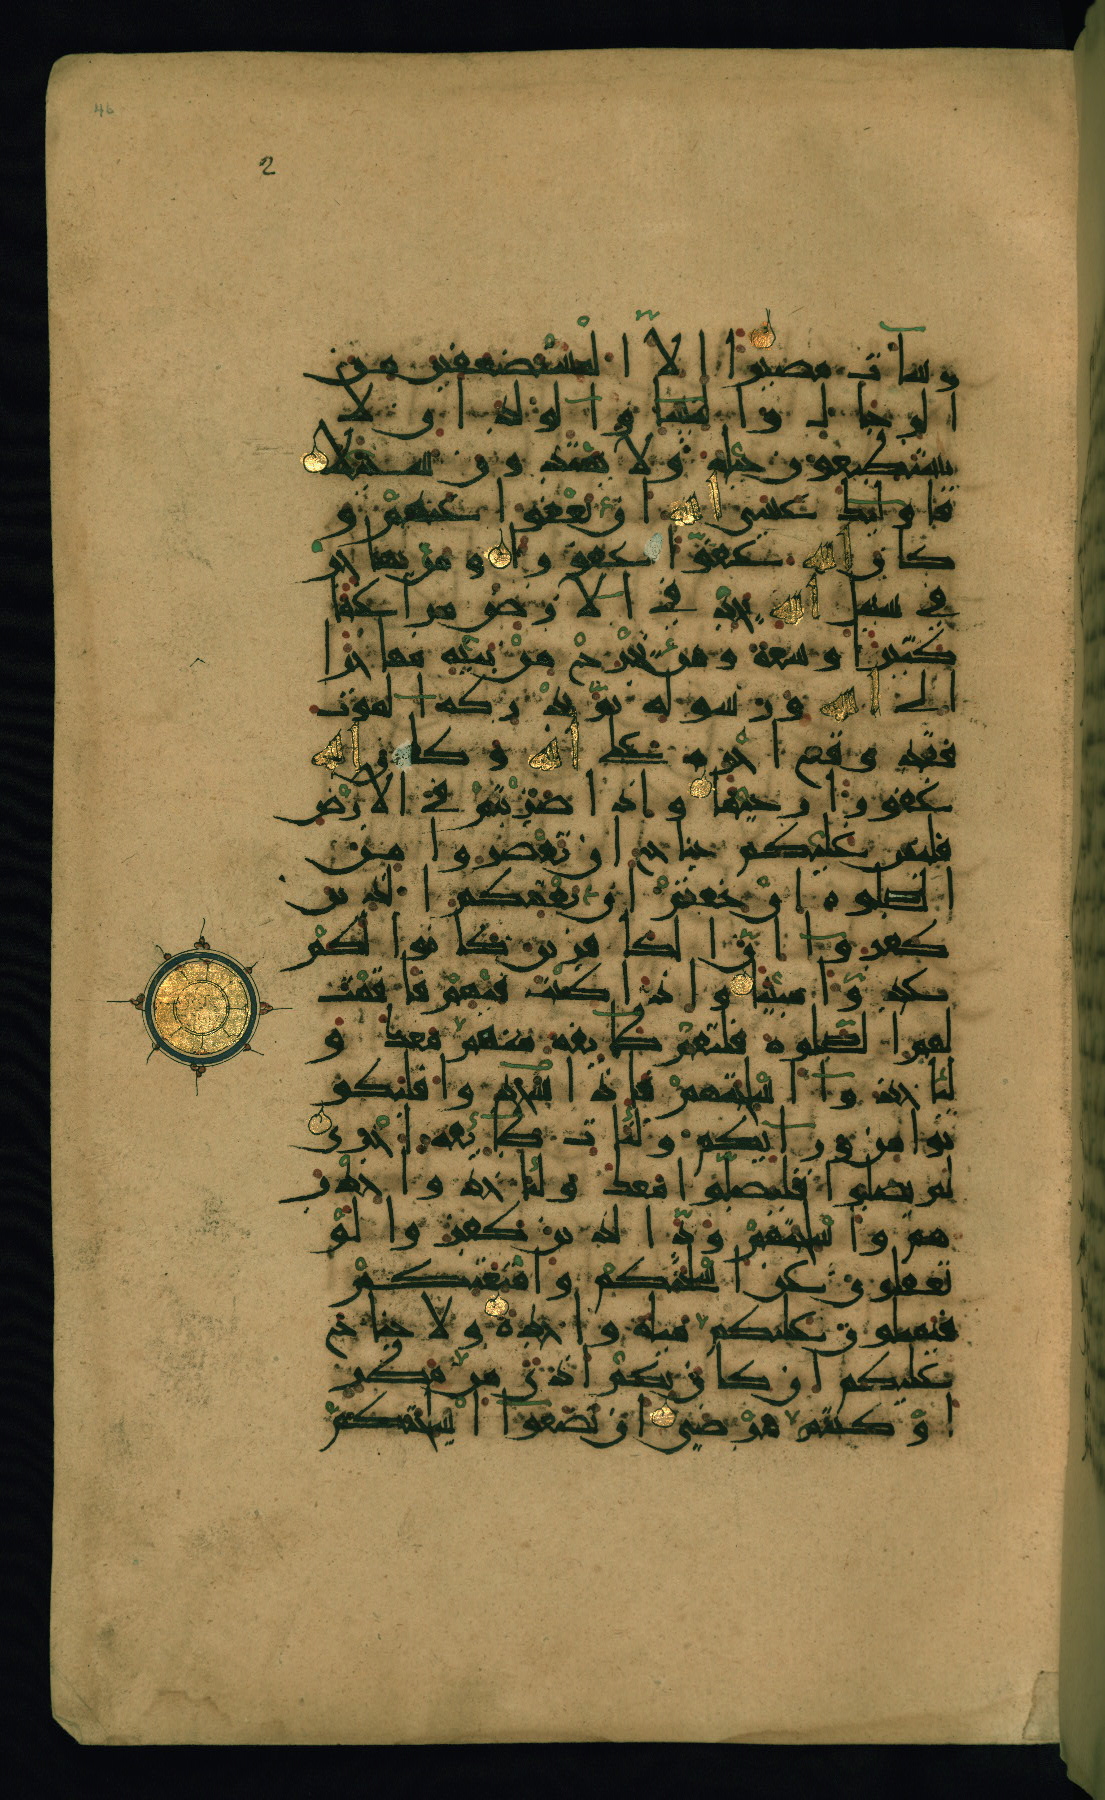 46
2
وسات مصيرا الا المستضعفين من
الرجال والنسا والولدان لا
يستطيعون حيلة ولا يهتدون سبيلا
فاولئك عسى الله ان يعفوا عنهم و
كان الله عفوا غفورا ومن يهاجر
في سبيل الله يجد في الارض مراغما
كثيرا وسعة ومن يخرج من بيته مهاجرا
الى الله ورسوله ثم يدركه الموت
فقد وقع اجره على الله وكان الله
غفورا رحيما واذا ضربتم في الارض
فليس عليكم جناح ان تقصروا من
الصلوة ان خفتم ان يفتنكم الذين
كفروا ان الكافرين كانوا لكم
عدوا مبينا واذا كنت فيهم فاقمت
لهم الصلوة فلتقم طايفة منهم معك و
لياخذوا اسلحتهم فاذا سجدوا فليكو
نوا من ورايكم ولتات طايفة اخرى
لم يصلوا فليصلوا معك ولياخذوا حذر
هم واسلحتهم ود الذين كفروا لو
تغفلون عن اسلحتكم وامتعتكم
فيميلون عليكم ميلة واحدة ولا جناح
عليكم ان كان بكم اذى من مطر
او كنتم مرضى ان تضعوا اسلحتكم